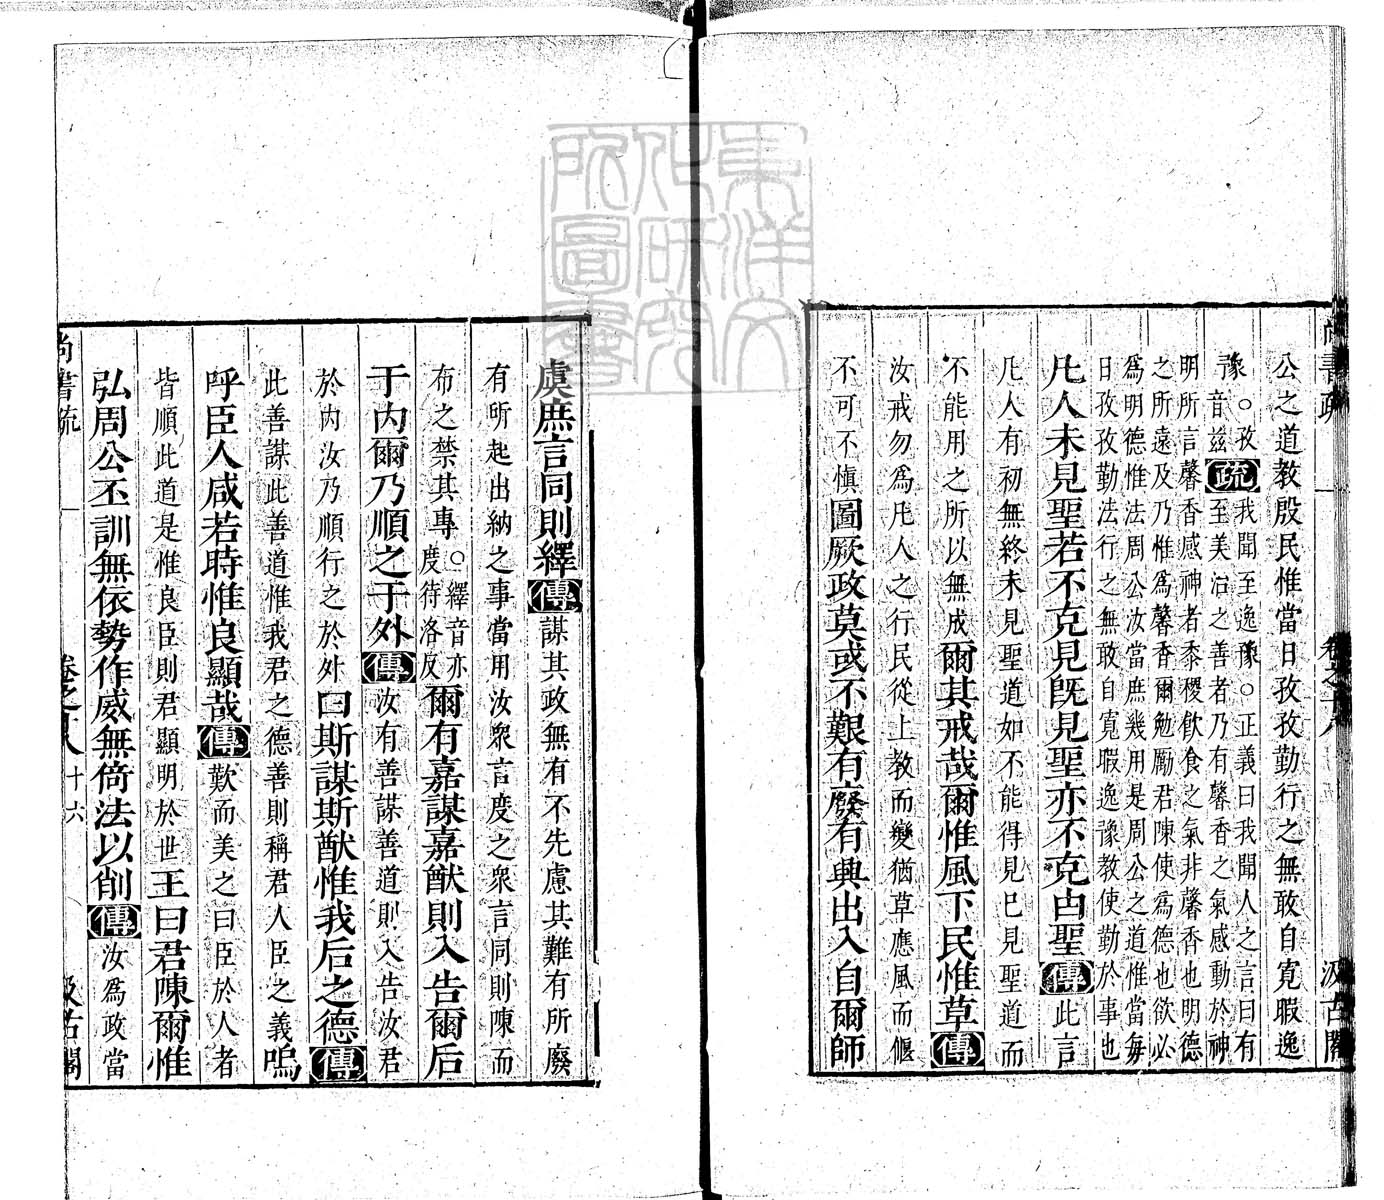 尚書疏 卷之十八 汲古閣
公之道教殷民惟當日孜孜勤行之無敢自寬暇逸
豫○孜
音兹疏我聞至逸豫○正義曰我聞人之言曰有
至美治之善者乃有馨香之氣感動於神
明所言馨香感神者黍稷飲食之氣非馨香也明德
之所遠及乃惟爲馨香爾勉勵君陳使爲德也欲必
爲明德惟法周公汝當庶幾用是周公之道惟當每
日孜孜勤法行之無敢自寬暇逸豫教使勤於事也
凡人未見聖若不克見既見聖亦不克由聖傳此言
凡人有初無終未見聖道如不能得見已見聖道而
不能用之所以無成爾其戒哉爾惟風下民惟草傳
汝戒勿爲凡人之行民從上教而變猶草應風而偃
不可不慎圖厥政莫或不艱有廢有興出入自爾師
虞庶言同則繹傳謀其政無有不先慮其難有所廢
有所起出納之事當用汝衆言度之衆言同則陳而
布之禁其專○繹音亦
度待洛反爾有嘉謀嘉猷則入告爾后
于内爾乃順之于外傳汝有善謀善道則入告汝君
於内汝乃順行之於外曰斯謀斯猷惟我后之德傳
此善謀此善道惟我君之德善則稱君人臣之義嗚
呼臣人咸若時惟良顯哉傳歎而美之曰臣於人者
皆順此道是惟良臣則君顯明於世王曰君陳爾惟
弘周公丕訓無依勢作威無倚法以削傳汝爲政當
尚書疏 卷之十八 十六 汲古閣
東洋文
化研究
所圖書